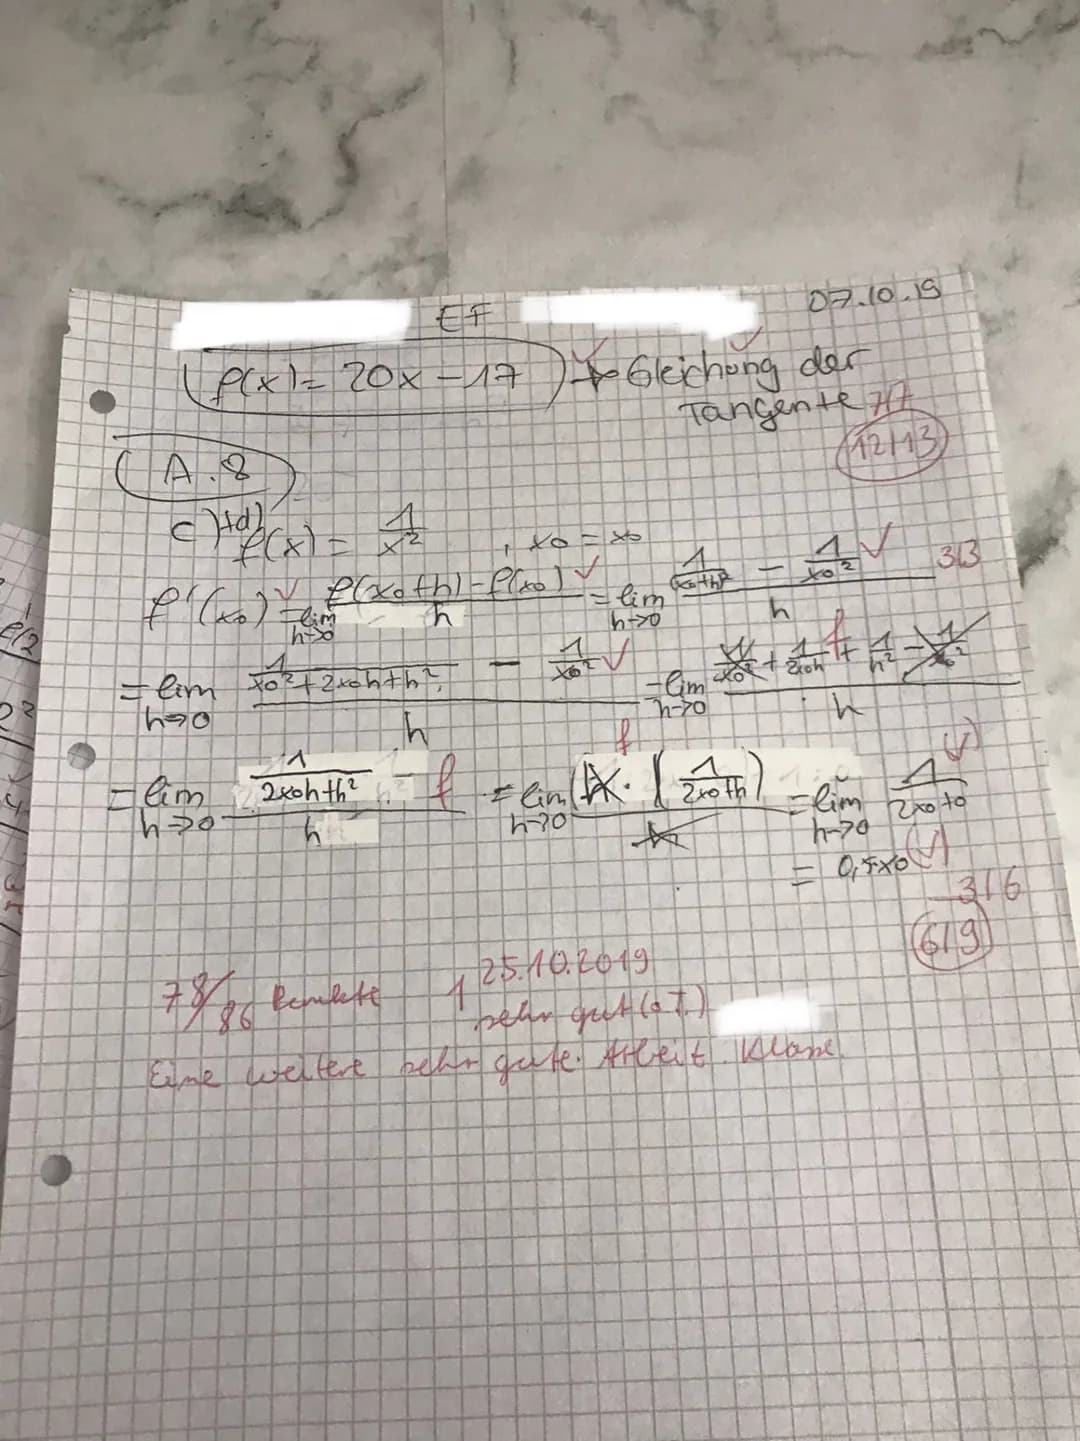 EF 07.10.19
f(x) = 20x - 17 → Gleichung der
Tangente 7/7
12/13
A.8
c)+d) f(x) = 1/x² , x0 = x0
f'(x0) = lim h→0 (f(x0+h) - f(x0))/h = lim h→0 (1/(x0+h)² - 1/x0²)/h 3/3
= lim h→0 (1/(x0²+2x0h+h²) - 1/x0²)/h = lim h→0 (1/x0² + 1/2x0h + 1/h² - 1/x0²)/h f
= lim h→0 (1/(2x0h+h²))/h f = lim h→0 (h·(1/(2x0+h)))/h f = lim h→0 1/(2x0+0) (✓)
= 0,5x0 (✓)
3/6
6/9
78/86 Punkte 1 25.10.2019
sehr gut (o.T.)
Eine weitere sehr gute Arbeit. Klasse